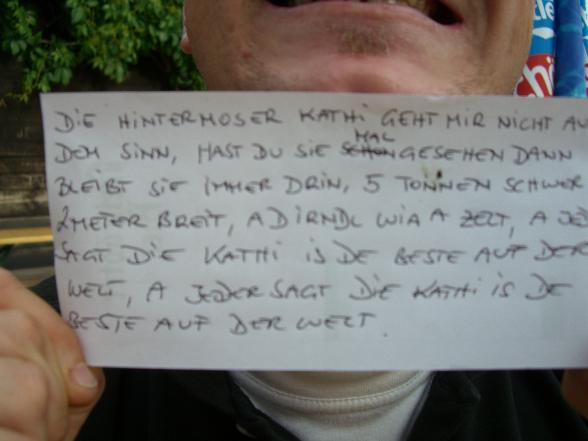 DIE HINTERMOSER KATHI GEHT MIR NICHT AU
MAL
DEM SINN, HAST DU SIE SCHON GESEHEN DANN
BLEIBT SIE IMMER DRIN, 5 TONNEN SCHWER
2 METER BREIT, A DIRNDL WIA A ZELT, A JED
SAGT DIE KATHI IS DE BESTE AUF DER
WELT, A JEDER SAGT DIE KATHI IS DE
BESTE AUF DER WELT.